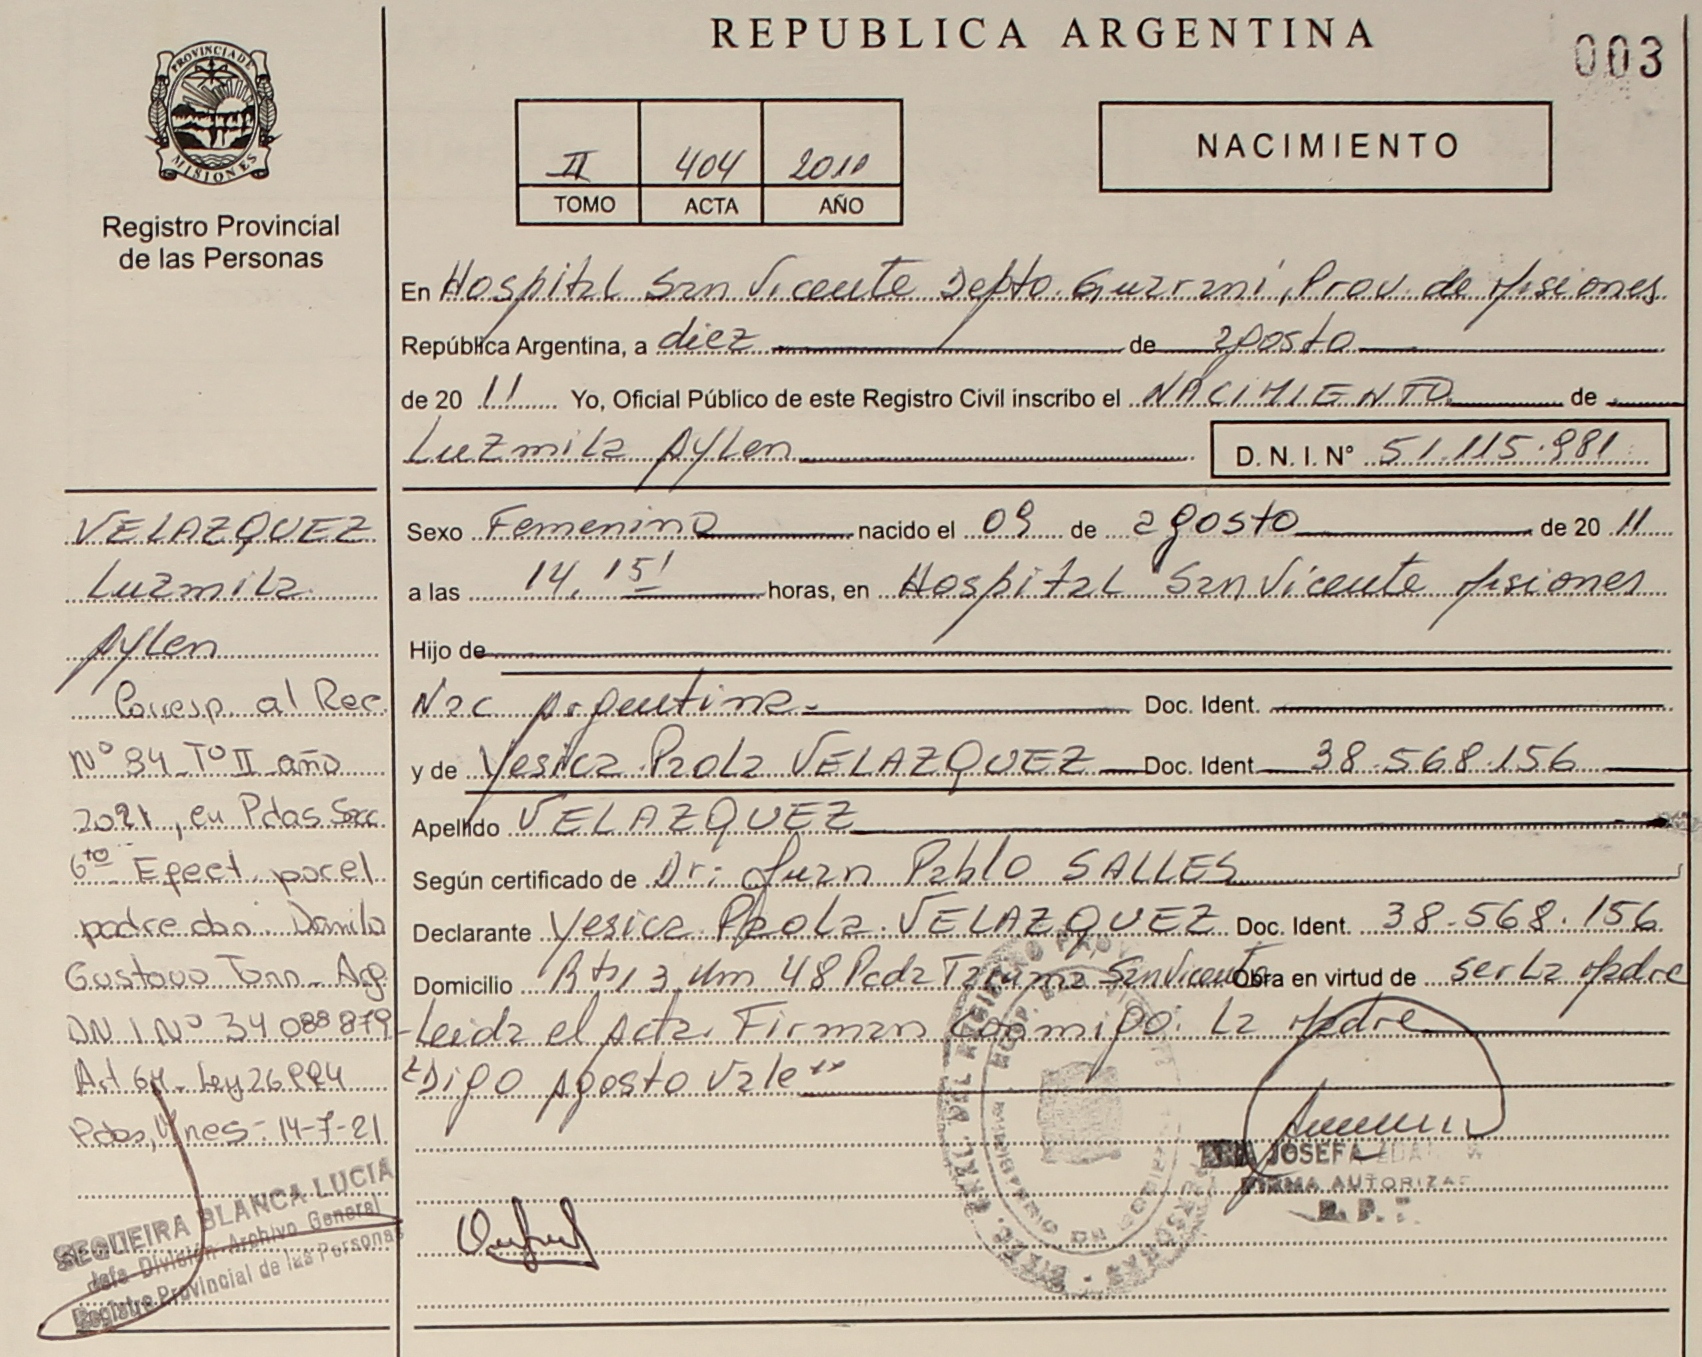 REPUBLICA ARGENTINA
003
PROVINCIA DE MISIONES
Registro Provincial
de las Personas
II 404
TOMO ACTA AÑO
NACIMIENTO
En Hospital San Vicente Depto. Guarani, Prov. de Misiones
República Argentina, a diez de agosto
de 2011 Yo, Oficial Público de este Registro Civil inscribo el NACIMIENTO de
Luzmila Aylen D. N. I. Nº 51.115.981
Sexo Femenino nacido el 09 de agosto de 2011
a las 14,15' horas, en Hospital San Vicente Misiones
Hijo de
Nac Argentina- Doc. Ident.
y de Yesica Paola VELAZQUEZ Doc. Ident. 38.568.156
Apellido VELAZQUEZ
Según certificado de Dr: Juan Pablo SALLES
Declarante Yesica Paola VELAZQUEZ Doc. Ident. 38.568.156
Domicilio Rta 3 Km 48 Pcda San Vicente Obra en virtud de ser La Madre
-Leida el Acta. Firman conmigo. La Madre
Digo Agosto Vale
VELAZQUEZ
Luzmila
Aylen
Corresp. al Rec.
Nº 94 Tº II año
2021, en Pdas Secc
6to Efect. por el
padre don Danilo
Gustavo Arg.
DNI Nº 34 088 879
Art 64- Ley 26994
Pdas, Mnes- 14-7-21
SEQUEIRA BLANCA LUCIA
Jefa División Archivo General
Registro Provincial de las Personas
JOSEFA
FIRMA AUTORIZA
R. P. P.